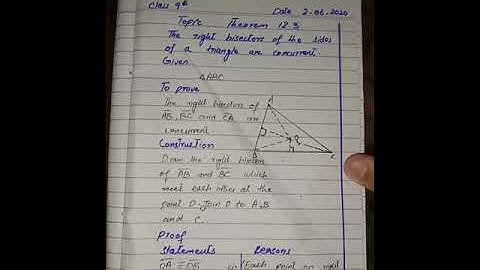 Class 9th Date 2-06-2020
Topic Theorem 12.3
The right bisectors of the sides
of a triangle are concurrent.
Given
△ABC
To prove
The right bisectors of
AB, BC and CA, are
concurrent
Construction
Draw the right bisectors
of AB and BC which
meet each other at the
point O. Join O to A, B
and C.
A
O
B
C
Proof
Statements Reasons
OA ≅ OB (Each point on right